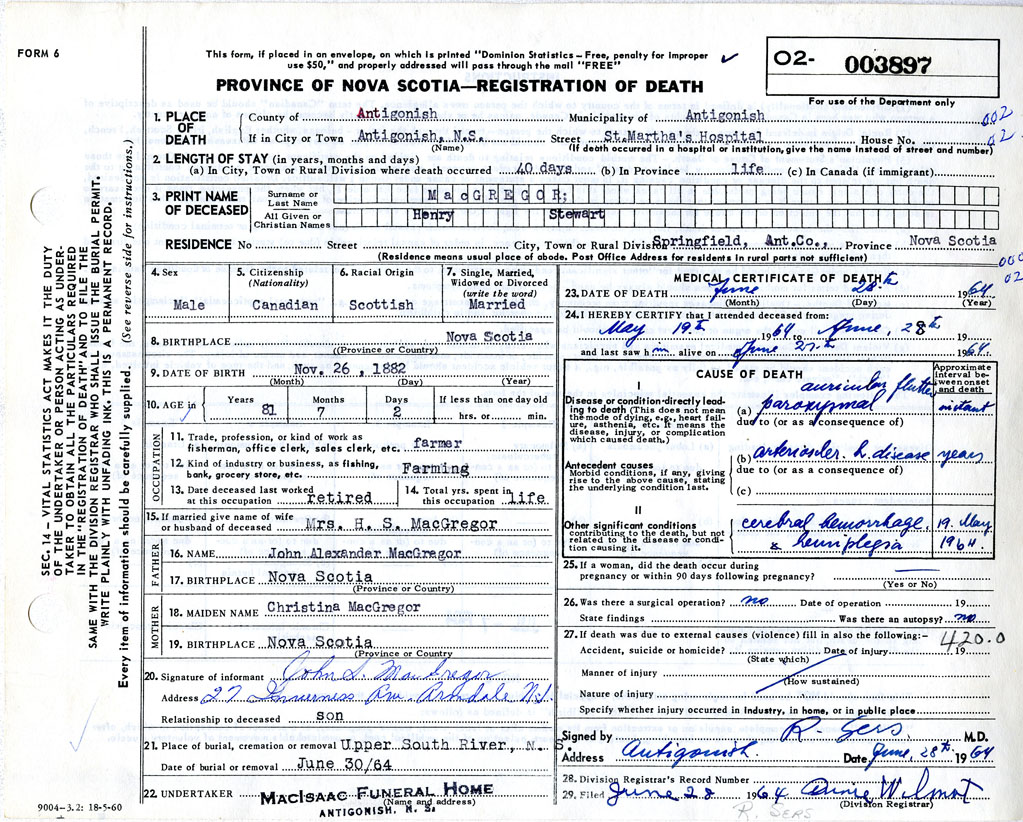 FORM 6
This form, if placed in an envelope, on which is printed "Dominion Statistics – Free, penalty for improper
use $50," and properly addressed will pass through the mail "FREE"
O2- 003897
For use of the Department only
PROVINCE OF NOVA SCOTIA—REGISTRATION OF DEATH
1. PLACE OF DEATH
County of Antigonish Municipality of Antigonish 002
If in City or Town Antigonish, N.S. Street St.Martha's Hospital House No. 02
(Name) (If death occurred in a hospital or institution, give the name instead of street and number)
2. LENGTH OF STAY (in years, months and days)
(a) In City, Town or Rural Division where death occurred 40 days (b) In Province life (c) In Canada (if immigrant)
3. PRINT NAME OF DECEASED
Surname or Last Name MacGREGOR;
All Given or Christian Names Henry Stewart
RESIDENCE No Street City, Town or Rural Division Springfield, Ant.Co., Province Nova Scotia
(Residence means usual place of abode. Post Office Address for residents in rural parts not sufficient)
000
02
4. Sex Male
5. Citizenship (Nationality) Canadian
6. Racial Origin Scottish
7. Single, Married, Widowed or Divorced (write the word) Married
8. BIRTHPLACE Nova Scotia
((Province or Country)
9. DATE OF BIRTH Nov. 26, 1882
(Month) (Day) (Year)
10. AGE in Years Months Days If less than one day old
81 7 2 hrs. or min.
OCCUPATION
11. Trade, profession, or kind of work as
fisherman, office clerk, sales clerk, etc. farmer
12. Kind of industry or business, as fishing,
bank, grocery store, etc. Farming
13. Date deceased last worked
at this occupation retired
14. Total yrs. spent in
this occupation life
15. If married give name of wife
or husband of deceased Mrs. H. S. MacGregor
FATHER
16. NAME John Alexander MacGregor
17. BIRTHPLACE Nova Scotia
(Province or Country)
MOTHER
18. MAIDEN NAME Christina MacGregor
19. BIRTHPLACE Nova Scotia
(Province or Country
20. Signature of informant John S. MacGregor
Address 27 Inverness Ave Armdale N.S.
Relationship to deceased son
21. Place of burial, cremation or removal Upper South River, N. S.
Date of burial or removal June 30/64
22. UNDERTAKER MacIsaac Funeral Home
(Name and address)
ANTIGONISH, N. S.
MEDICAL CERTIFICATE OF DEATH
23. DATE OF DEATH June 28th 1964
(Month) (Day) (Year)
24. I HEREBY CERTIFY that I attended deceased from:
May 19th 1964 to June, 28th 19
and last saw him alive on June 27th 1964
CAUSE OF DEATH
Approximate interval between onset and death
I
Disease or condition directly leading to death (This does not mean the mode of dying, e.g., heart failure, asthenia, etc. It means the disease, injury, or complication which caused death.)
auricular flutter
(a) paroxysmal instant
due to (or as a consequence of)
Antecedent causes
Morbid conditions, if any, giving rise to the above cause, stating the underlying condition last.
(b) arterioscler. h. disease years
due to (or as a consequence of)
(c)
II
Other significant conditions contributing to the death, but not related to the disease or condition causing it.
cerebral hemorrhage, 19. May
& hemiplegia 1964.
25. If a woman, did the death occur during
pregnancy or within 90 days following pregnancy?
(Yes or No)
26. Was there a surgical operation? no Date of operation 19
State findings Was there an autopsy? no
27. If death was due to external causes (violence) fill in also the following:– 420.0
Accident, suicide or homicide? Date of injury 19
(State which)
Manner of injury
(How sustained)
Nature of injury
Specify whether injury occurred in industry, in home, or in public place
Signed by R. Sers M.D.
Address Antigonish Date June, 28th 1964
28. Division Registrar's Record Number
29. Filed June 28 1964 Annie Wilmot
(Division Registrar)
R. SERS
SEC. 14 – VITAL STATISTICS ACT MAKES IT THE DUTY
OF THE UNDERTAKER OR PERSON ACTING AS UNDER-
TAKER TO OBTAIN ALL THE PARTICULARS REQUIRED
IN THE "REGISTRATION OF DEATH" AND TO FILE THE
SAME WITH THE DIVISION REGISTRAR WHO SHALL ISSUE THE BURIAL PERMIT.
WRITE PLAINLY WITH UNFADING INK. THIS IS A PERMANENT RECORD.
Every item of information should be carefully supplied. (See reverse side for instructions.)
9004–3.2: 18-5-60